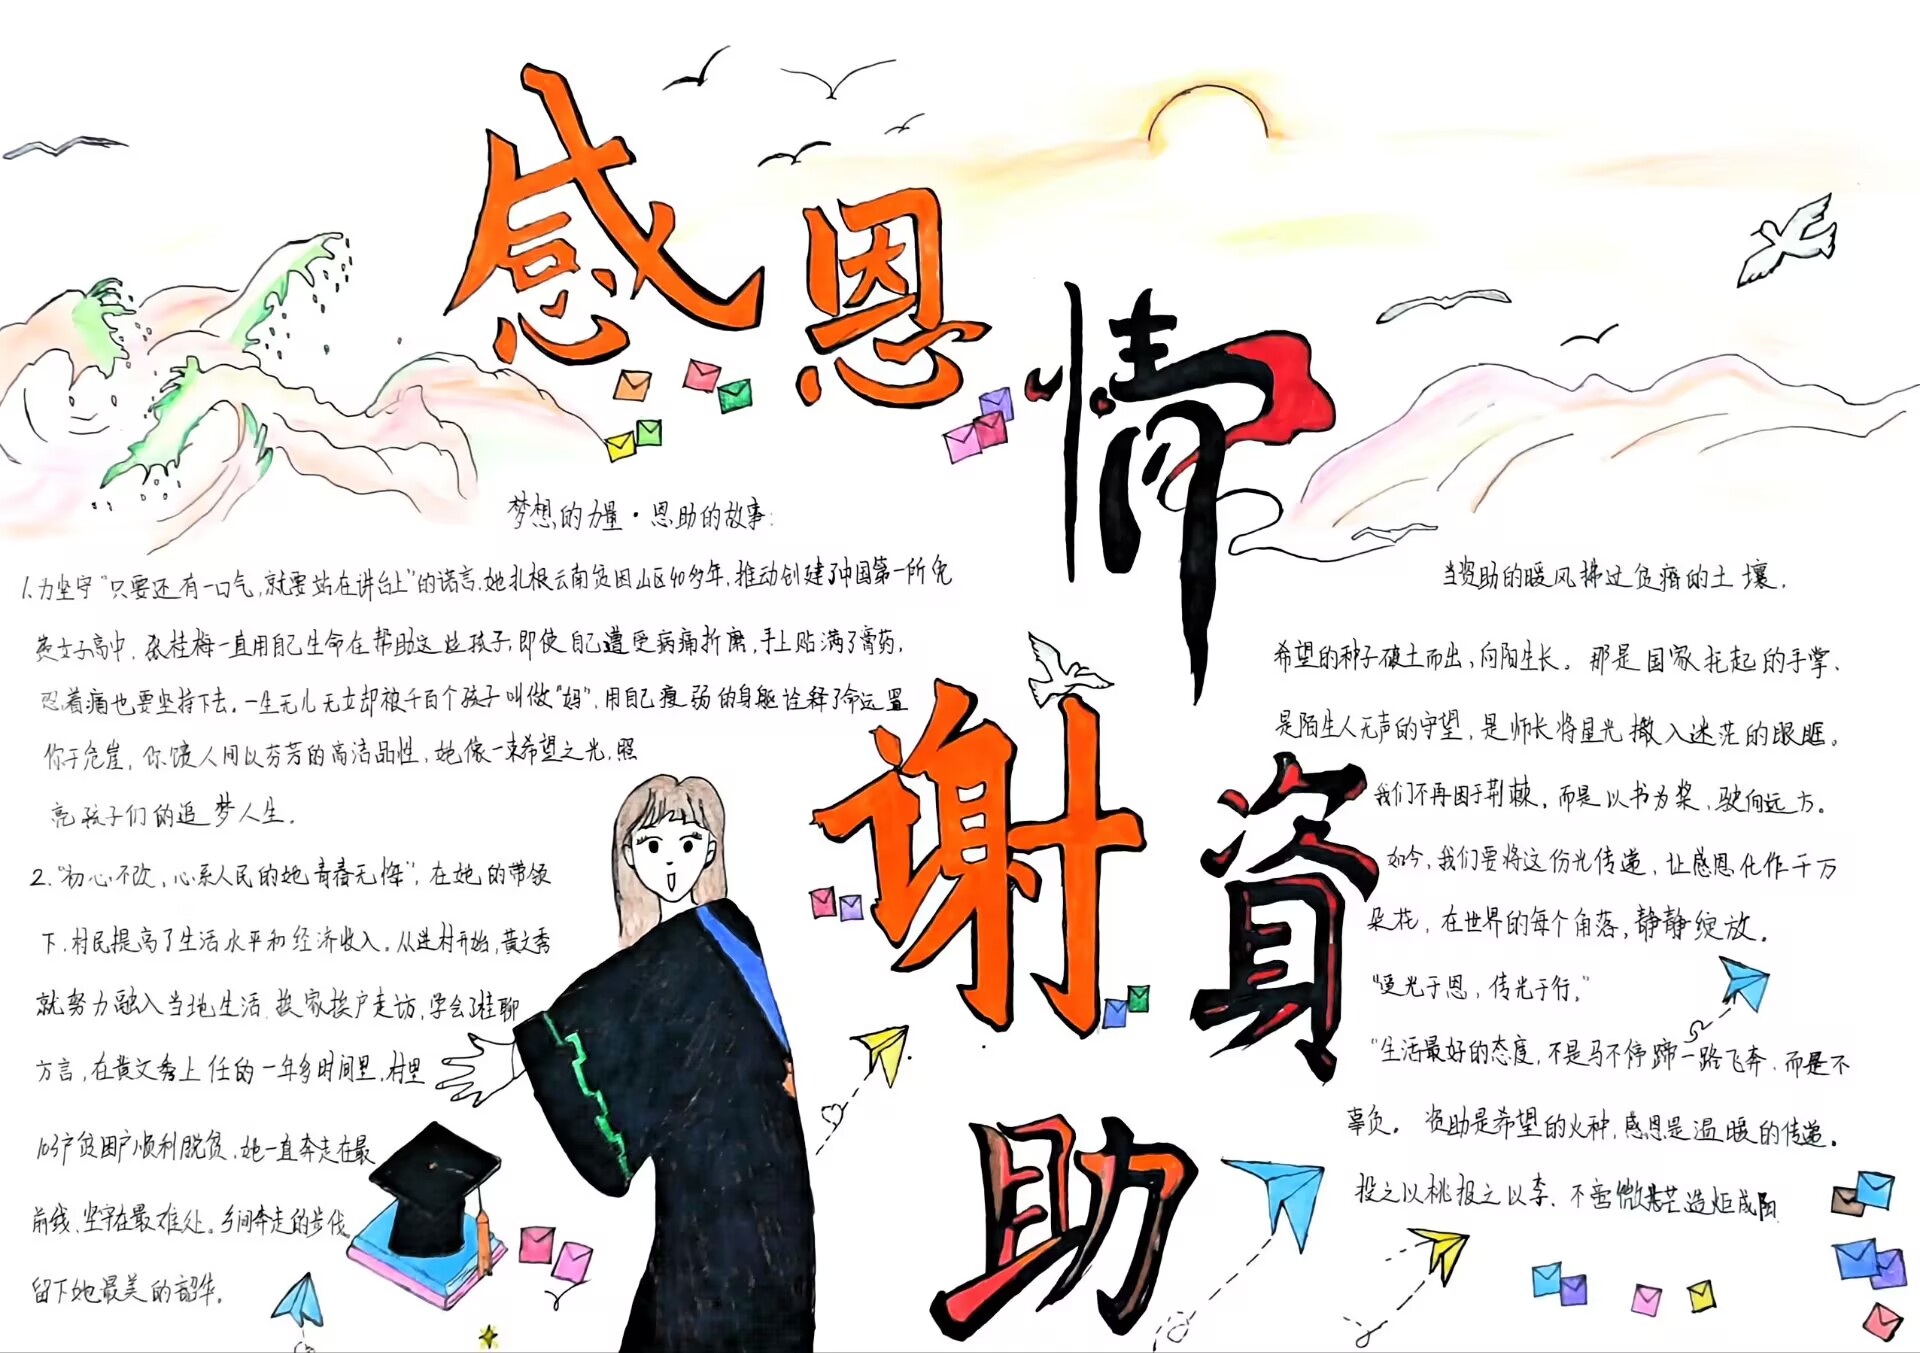 感恩情
谢資助
梦想的力量·恩助的故事:
1.为坚守“只要还有一口气,就要站在讲台上”的诺言.她扎根云南贫困山区40多年,推动创建了中国第一所免
费女子高中.张桂梅一直用自己生命在帮助这些孩子,即使自己遭受病痛折磨,手上贴满了膏药,
忍着痛也要坚持下去。一生无儿无女却被千百个孩子叫做“妈”,用自己瘦弱的身躯诠释了命运置
你于危崖,你馈人间以芬芳的高洁品性,她像一束希望之光.照
亮孩子们的追梦人生.
2.“初心不改,心系人民的她青春无悔”,在她的带领
下.村民提高了生活水平和经济收入。从进村开始,黄文秀
就努力融入当地生活.挨家挨户走访,学会了桂聊
方言,在黄文秀上任的一年多时间里,村里
103户贫困户顺利脱贫.她一直奔走在最
前线.坚守在最难处。乡间奔走的步伐
留下她最美的韶华.
当资助的暖风拂过贫瘠的土壤.
希望的种子破土而出,向阳生长。那是国家托起的手掌.
是陌生人无声的守望,是师长将星光撒入迷茫的眼眶。
我们不再困于荆棘,而是以书为桨,驶向远方。
如今,我们要将这份光传递,让感恩化作千万
朵花,在世界的每个角落,静静绽放。
“受光于恩,传光于行。”
“生活最好的态度,不是马不停蹄一路飞奔.而是不
辜负。资助是希望的火种,感恩是温暖的传递。
投之以桃报之以李.不啻微芒造炬成阳